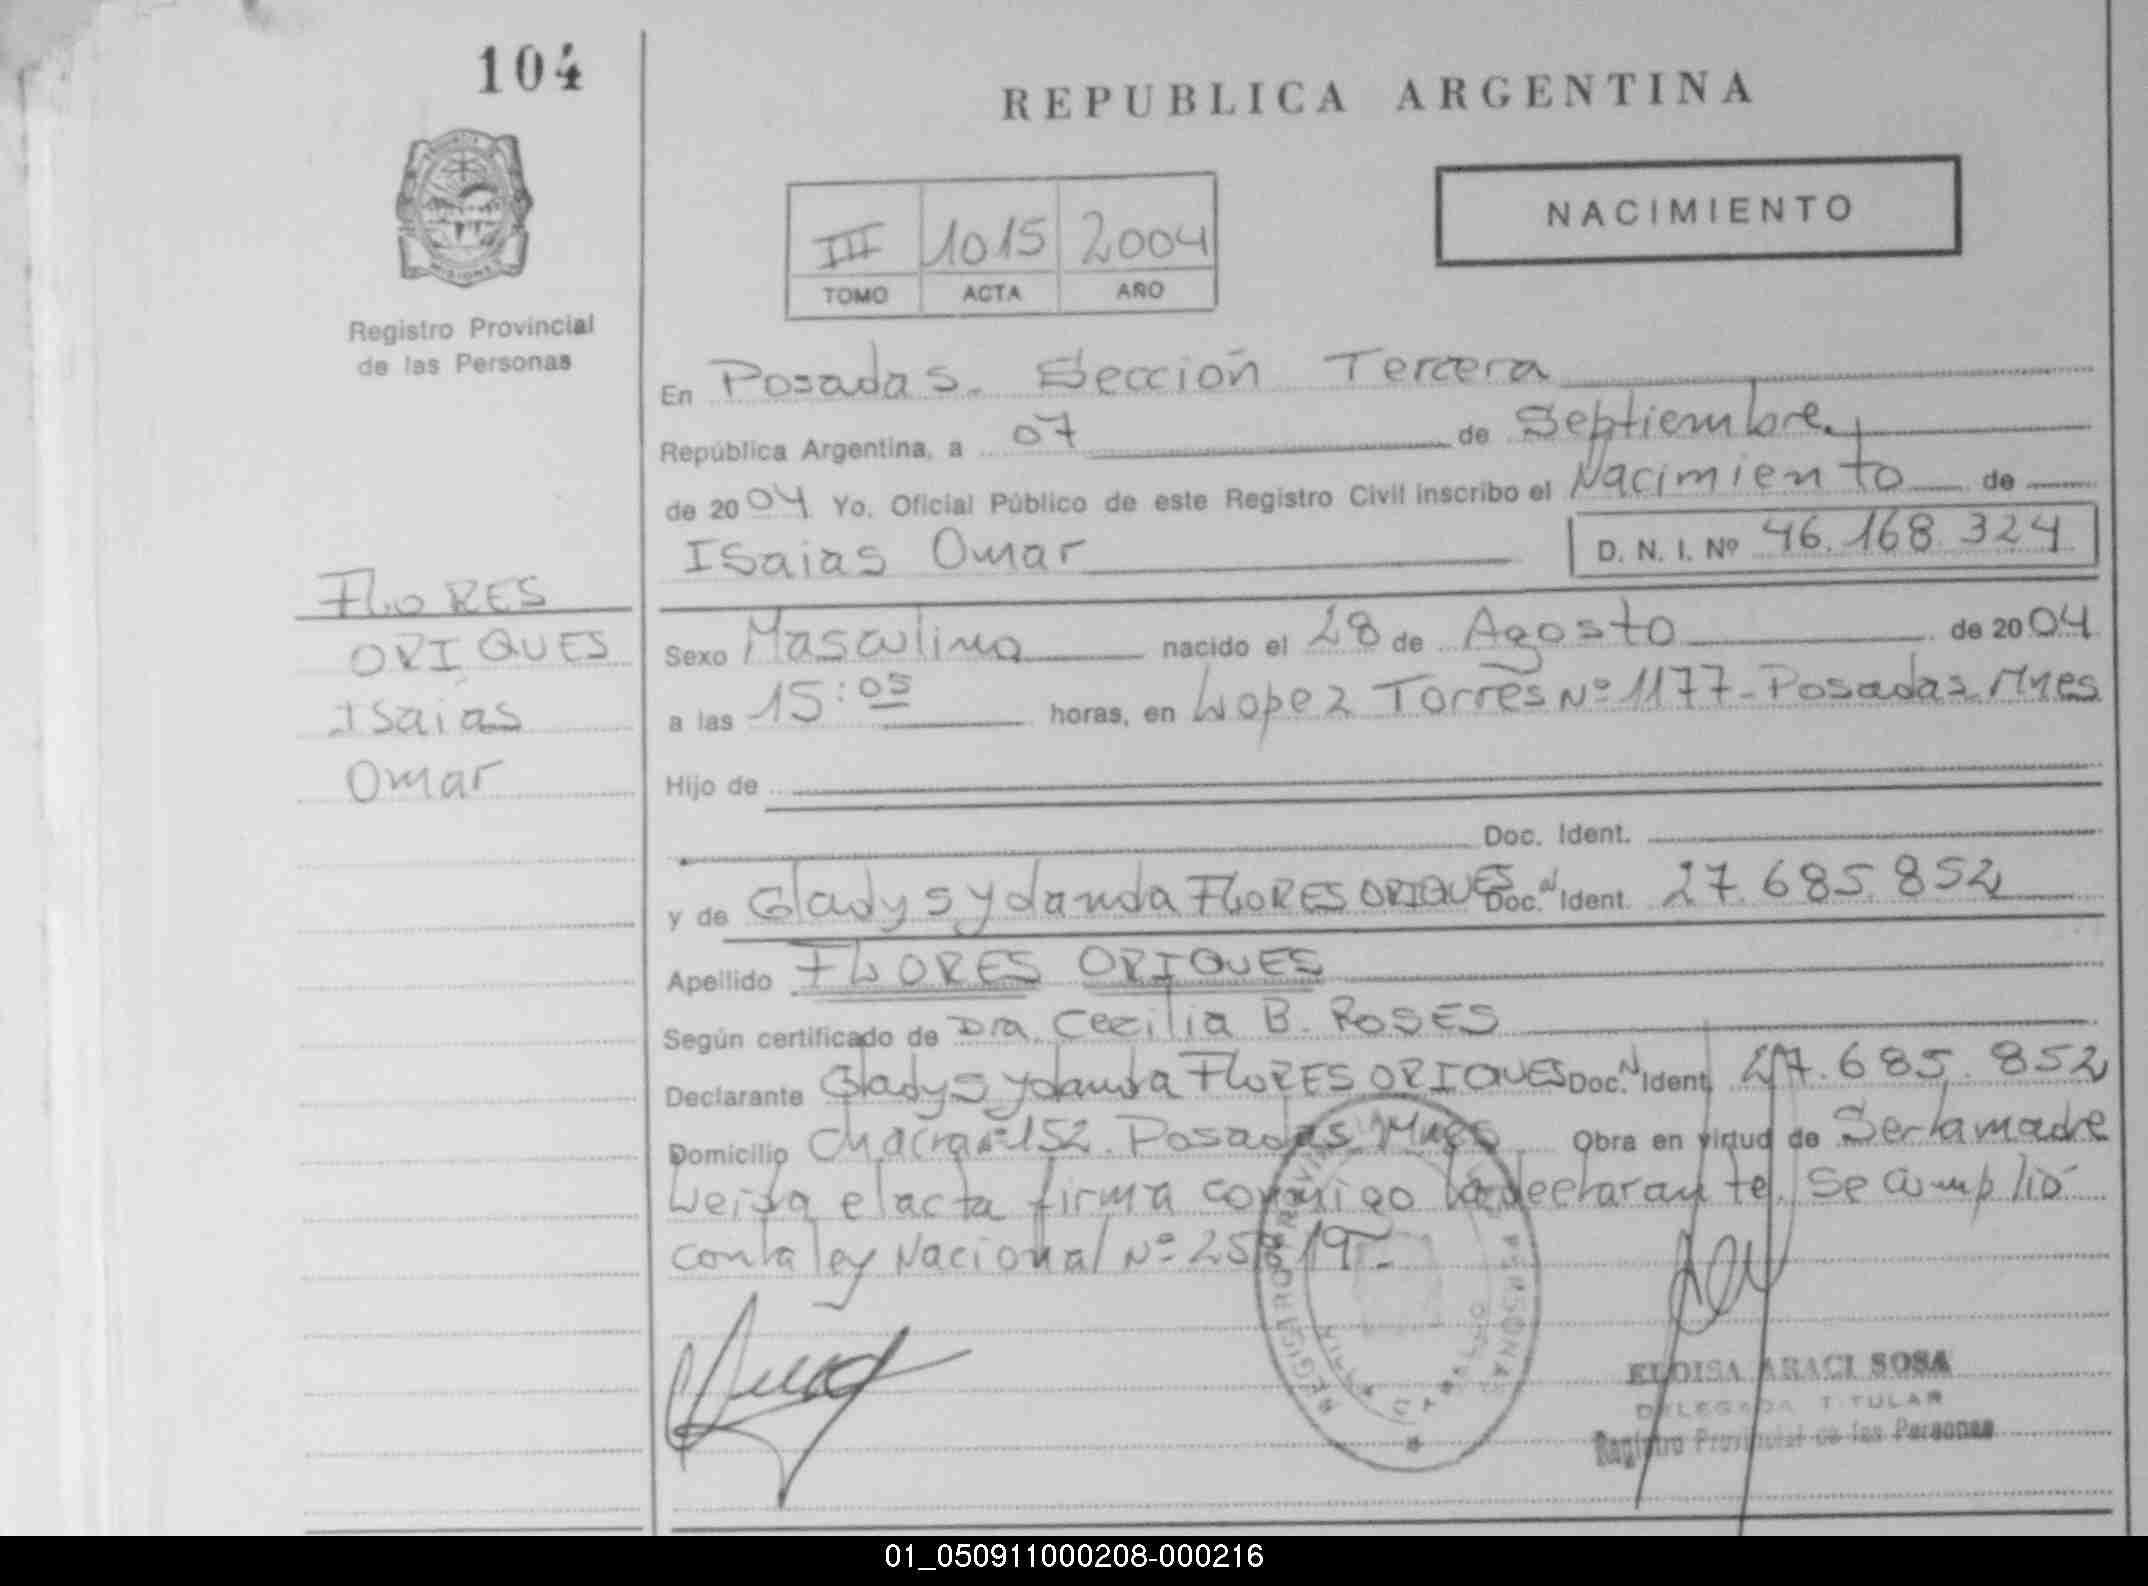 104
REPUBLICA ARGENTINA
NACIMIENTO
III 1015 2004
TOMO ACTA AÑO
MISIONES
Registro Provincial
de las Personas
En Posadas. Sección Tercera
República Argentina, a 07 de Septiembre
de 2004 Yo, Oficial Público de este Registro Civil inscribo el Nacimiento de
Isaias Omar D. N. I. Nº 46.168.324
FLORES
ORIQUES
Isaias
Omar
Sexo Masculino nacido el 28 de Agosto de 2004
a las 15:05 horas, en Lopez Torres Nº 1177-Posadas Mnes
Hijo de
Doc. Ident.
y de Gladys Yolanda FLORES ORIQUES Doc. Ident. 27.685.852
Apellido FLORES ORIQUES
Según certificado de Dra. Cecilia B. ROSES
Declarante Gladys Yolanda FLORES ORIQUES Doc. Ident. 27.685.852
Domicilio Chacra Nº 152. Posadas Mnes Obra en virtud de Ser la madre
Leida el acta firma conmigo la declarante. Se cumplió
con la ley Nacional Nº 25819-
ELOISA ARACI SOSA
DELEGADA TITULAR
Registro Provincial de las Personas
01_050911000208-000216